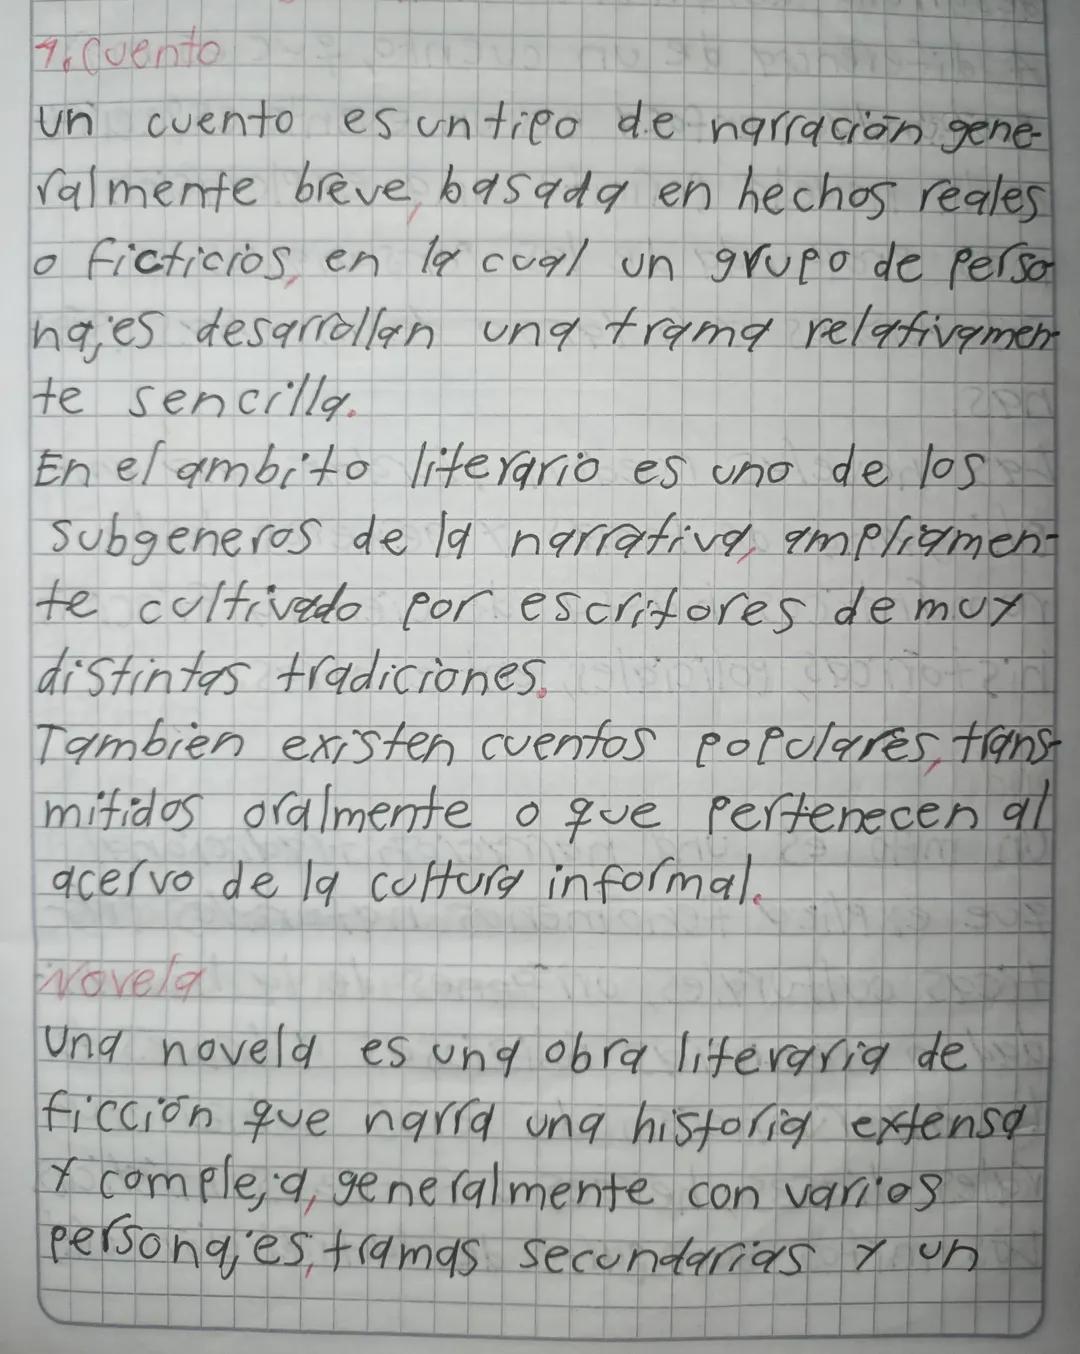 1. Cuento
Un cuento es un tipo de narración gene-
ralmente breve, basada en hechos reales
o ficticios, en la cual un grupo de perso
najes desarrollan una trama relativamen-
te sencilla.
En el ambito literario es uno de los
subgeneros de la narrativa, ampliamen-
te cultivado por escritores de muy
distintas tradiciones.
Tambien existen cuentos populares, trans-
mitidos oralmente o que pertenecen al
acervo de la cultura informal.
Novela
Una novela es una obra literaria de
ficción que narra una historia extensa
y compleja, generalmente con varios
personajes, tramas secundarias y un